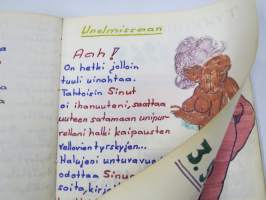 Unelmissaan
Aah!
On hetki jolloin
tuuli uinahtaa.
Tahtoisin Sinut
oi ihanuuteni, saattaa
uuteen satamaan unipur-
rellani halki kaipausten
vellovien tyrskyjen...
Halujeni untuvavuo
odottaa Sinua
soita, kirj
3.